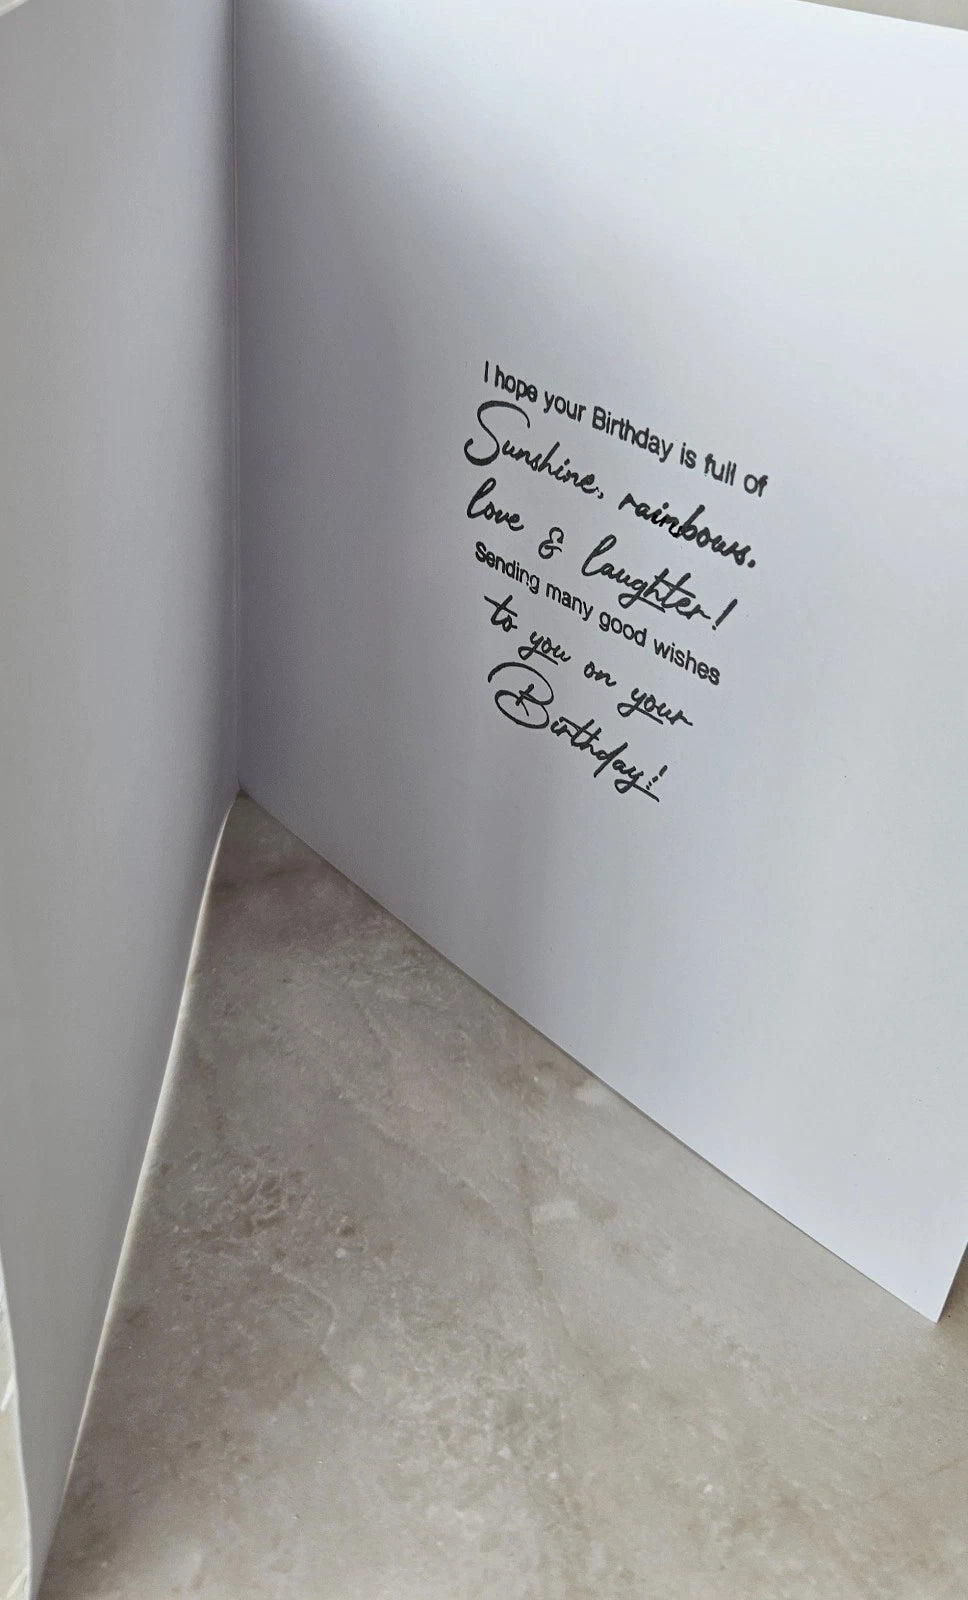 I hope your Birthday is full of
Sunshine, rainbows,
love & laughter!
Sending many good wishes
to you on your
Birthday!